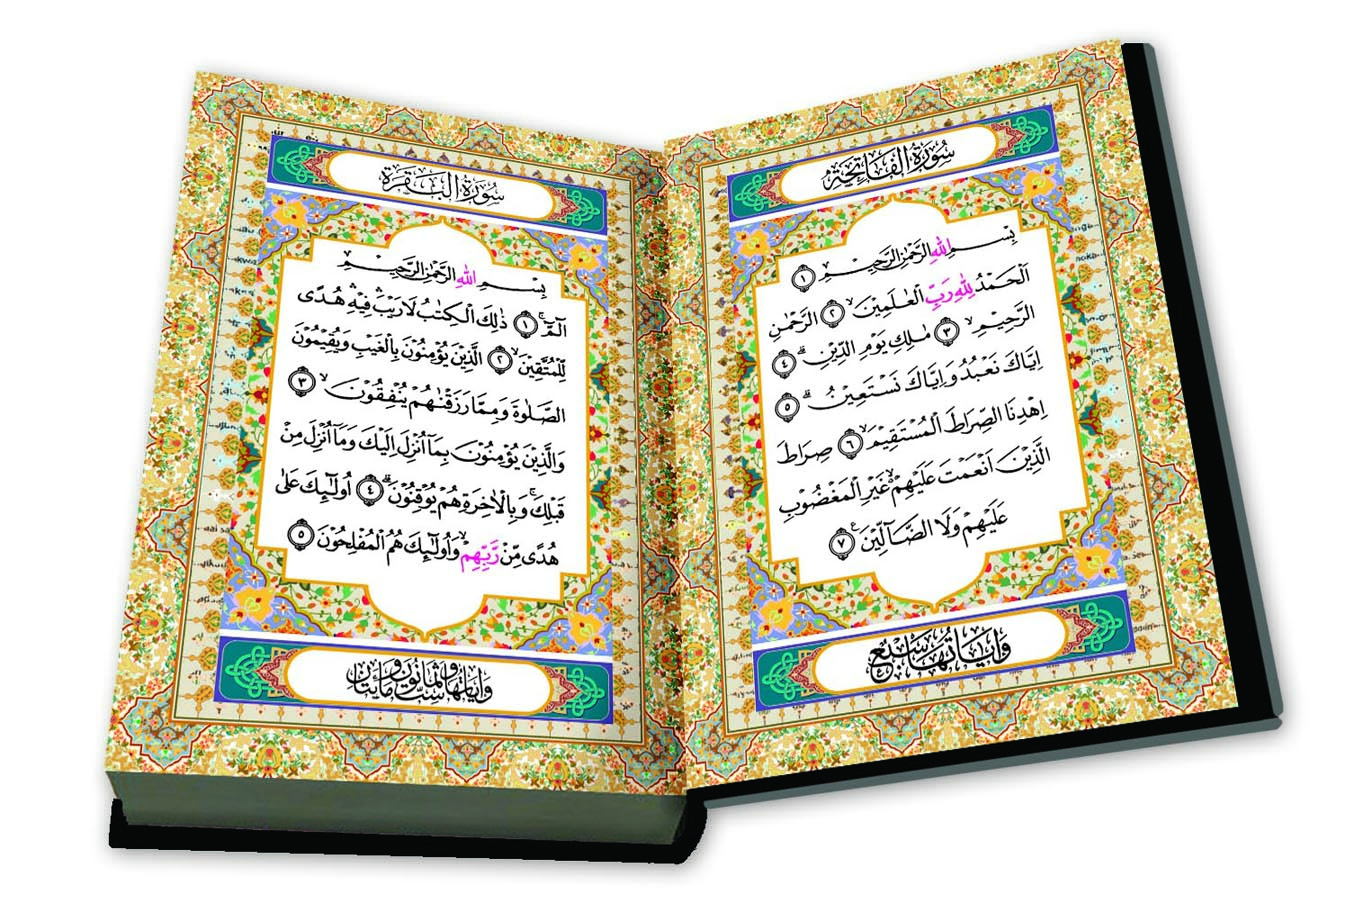 سُورَةُ الْفَاتِحَةِ
بِسْمِ اللهِ الرَّحْمٰنِ الرَّحِيْمِ ﴿١﴾
اَلْحَمْدُ لِلّٰهِ رَبِّ الْعٰلَمِيْنَ ۙ ﴿٢﴾ الرَّحْمٰنِ
الرَّحِيْمِ ۙ ﴿٣﴾ مٰلِكِ يَوْمِ الدِّيْنِ ۗ ﴿٤﴾
اِيَّاكَ نَعْبُدُ وَاِيَّاكَ نَسْتَعِيْنُ ۗ ﴿٥﴾
اِهْدِنَا الصِّرَاطَ الْمُسْتَقِيْمَ ۙ ﴿٦﴾ صِرَاطَ
الَّذِيْنَ اَنْعَمْتَ عَلَيْهِمْ ۙ غَيْرِ الْمَغْضُوْبِ
عَلَيْهِمْ وَلَا الضَّآلِّيْنَ ۚ ﴿٧﴾
وَاٰيَاتُهَا سَبْعٌ
سُورَةُ الْبَقَرَةِ
بِسْمِ اللهِ الرَّحْمٰنِ الرَّحِيْمِ
الٓمّٓ ۚ ﴿١﴾ ذٰلِكَ الْكِتٰبُ لَا رَيْبَ ۛ فِيْهِ ۛ هُدًى
لِّلْمُتَّقِيْنَ ۙ ﴿٢﴾ الَّذِيْنَ يُؤْمِنُوْنَ بِالْغَيْبِ وَيُقِيْمُوْنَ
الصَّلٰوةَ وَمِمَّا رَزَقْنٰهُمْ يُنْفِقُوْنَ ۙ ﴿٣﴾
وَالَّذِيْنَ يُؤْمِنُوْنَ بِمَآ اُنْزِلَ اِلَيْكَ وَمَآ اُنْزِلَ مِنْ
قَبْلِكَ ۚ وَبِالْاٰخِرَةِ هُمْ يُوْقِنُوْنَ ۗ ﴿٤﴾ اُولٰٓئِكَ عَلٰى
هُدًى مِّنْ رَّبِّهِمْ ۙ وَاُولٰٓئِكَ هُمُ الْمُفْلِحُوْنَ ﴿٥﴾
وَاٰيَاتُهَا سِتٌّ وَثَمَانُوْنَ وَمِائَتَانِ